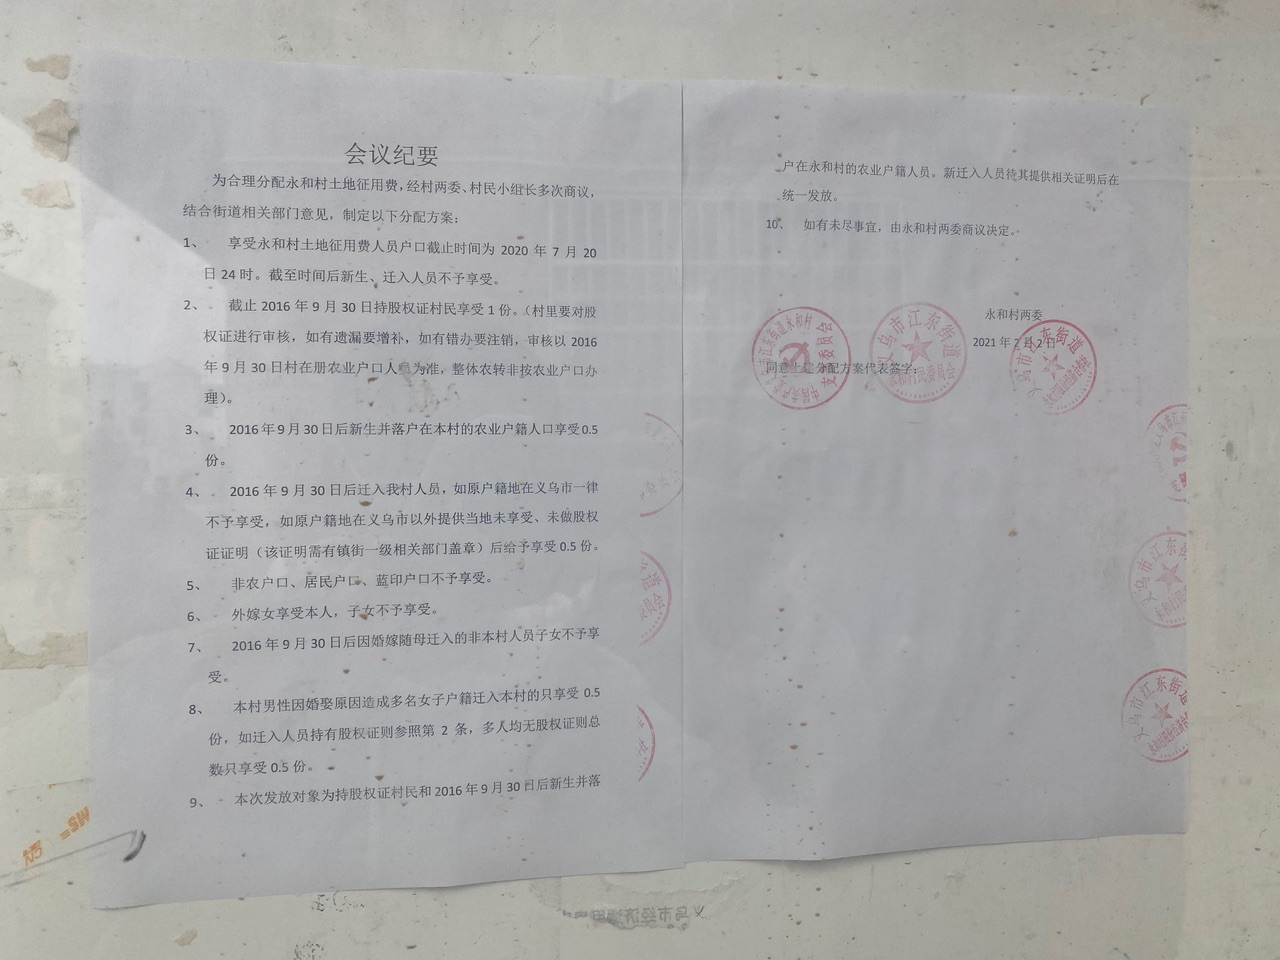 会议纪要
为合理分配永和村土地征用费，经村两委、村民小组长多次商议，
结合街道相关部门意见，制定以下分配方案：
1、 享受永和村土地征用费人员户口截止时间为 2020 年 7 月 20
日 24 时。截至时间后新生、迁入人员不予享受。
2、 截止 2016 年 9 月 30 日持股权证村民享受 1 份。（村里要对股
权证进行审核，如有遗漏要增补，如有错办要注销，审核以 2016
年 9 月 30 日村在册农业户口人员为准，整体农转非按农业户口办
理）。
3、 2016 年 9 月 30 日后新生并落户在本村的农业户籍人口享受 0.5
份。
4、 2016 年 9 月 30 日后迁入我村人员，如原户籍地在义乌市一律
不予享受，如原户籍地在义乌市以外提供当地未享受、未做股权
证证明（该证明需有镇街一级相关部门盖章）后给予享受 0.5 份。
5、 非农户口、居民户口、蓝印户口不予享受。
6、 外嫁女享受本人，子女不予享受。
7、 2016 年 9 月 30 日后因婚嫁随母迁入的非本村人员子女不予享
受。
8、 本村男性因婚娶原因造成多名女子户籍迁入本村的只享受 0.5
份，如迁入人员持有股权证则参照第 2 条，多人均无股权证则总
数只享受 0.5 份。
9、 本次发放对象为持股权证村民和 2016 年 9 月 30 日后新生并落
户在永和村的农业户籍人员。新迁入人员待其提供相关证明后在
统一发放。
10、 如有未尽事宜，由永和村两委商议决定。
永和村两委
2021 年 2 月 2 日
同意上述分配方案代表签字：
江东街道永和村
支部委员会
义乌市江东街道
永和村民委员会
义乌市江东街道
义乌市江东
义乌市江东街道